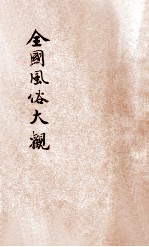 全國風俗大觀